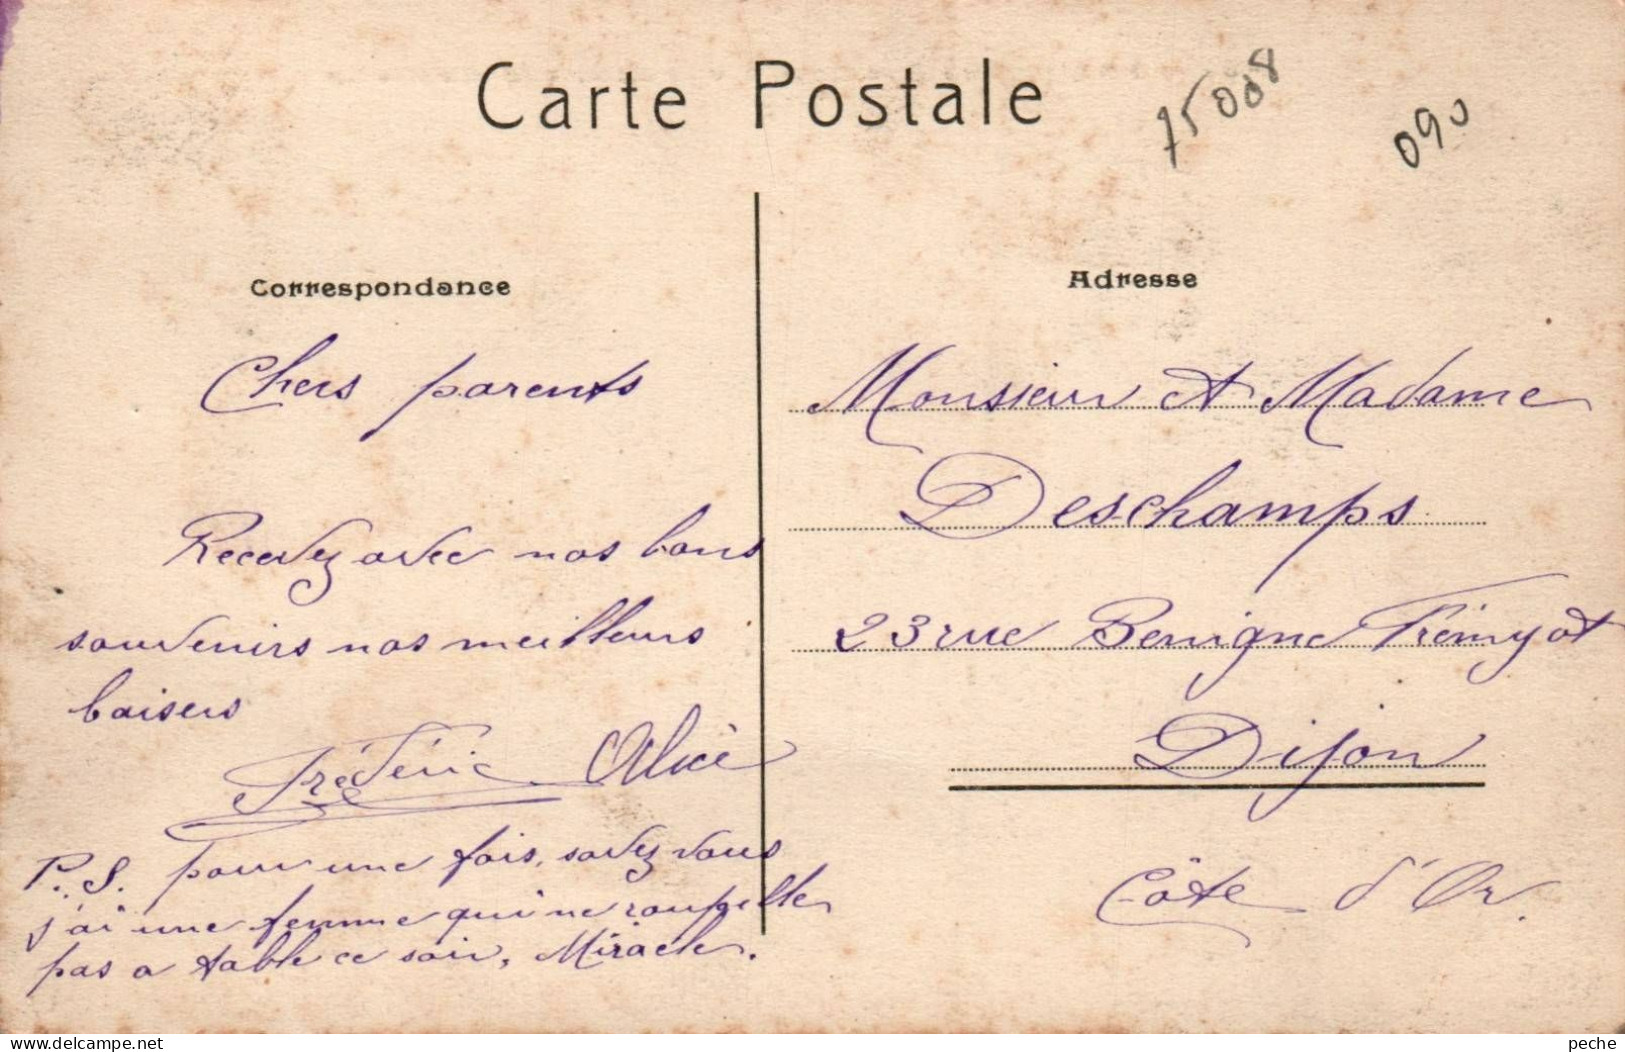 Carte Postale
75008
090
Correspondance
Chers parents
Recevez avec nos bons
souvenirs nos meilleurs
baisers
Frédéric Alice
P.S. pour une fois, savez vous
j'ai une femme qui ne roupille
pas a table ce soir, Miracle.
Adresse
Monsieur et Madame
Deschamps
23 rue Benigne Frémyot
Dijon
Côte d'Or.
www.delcampe.net
peche